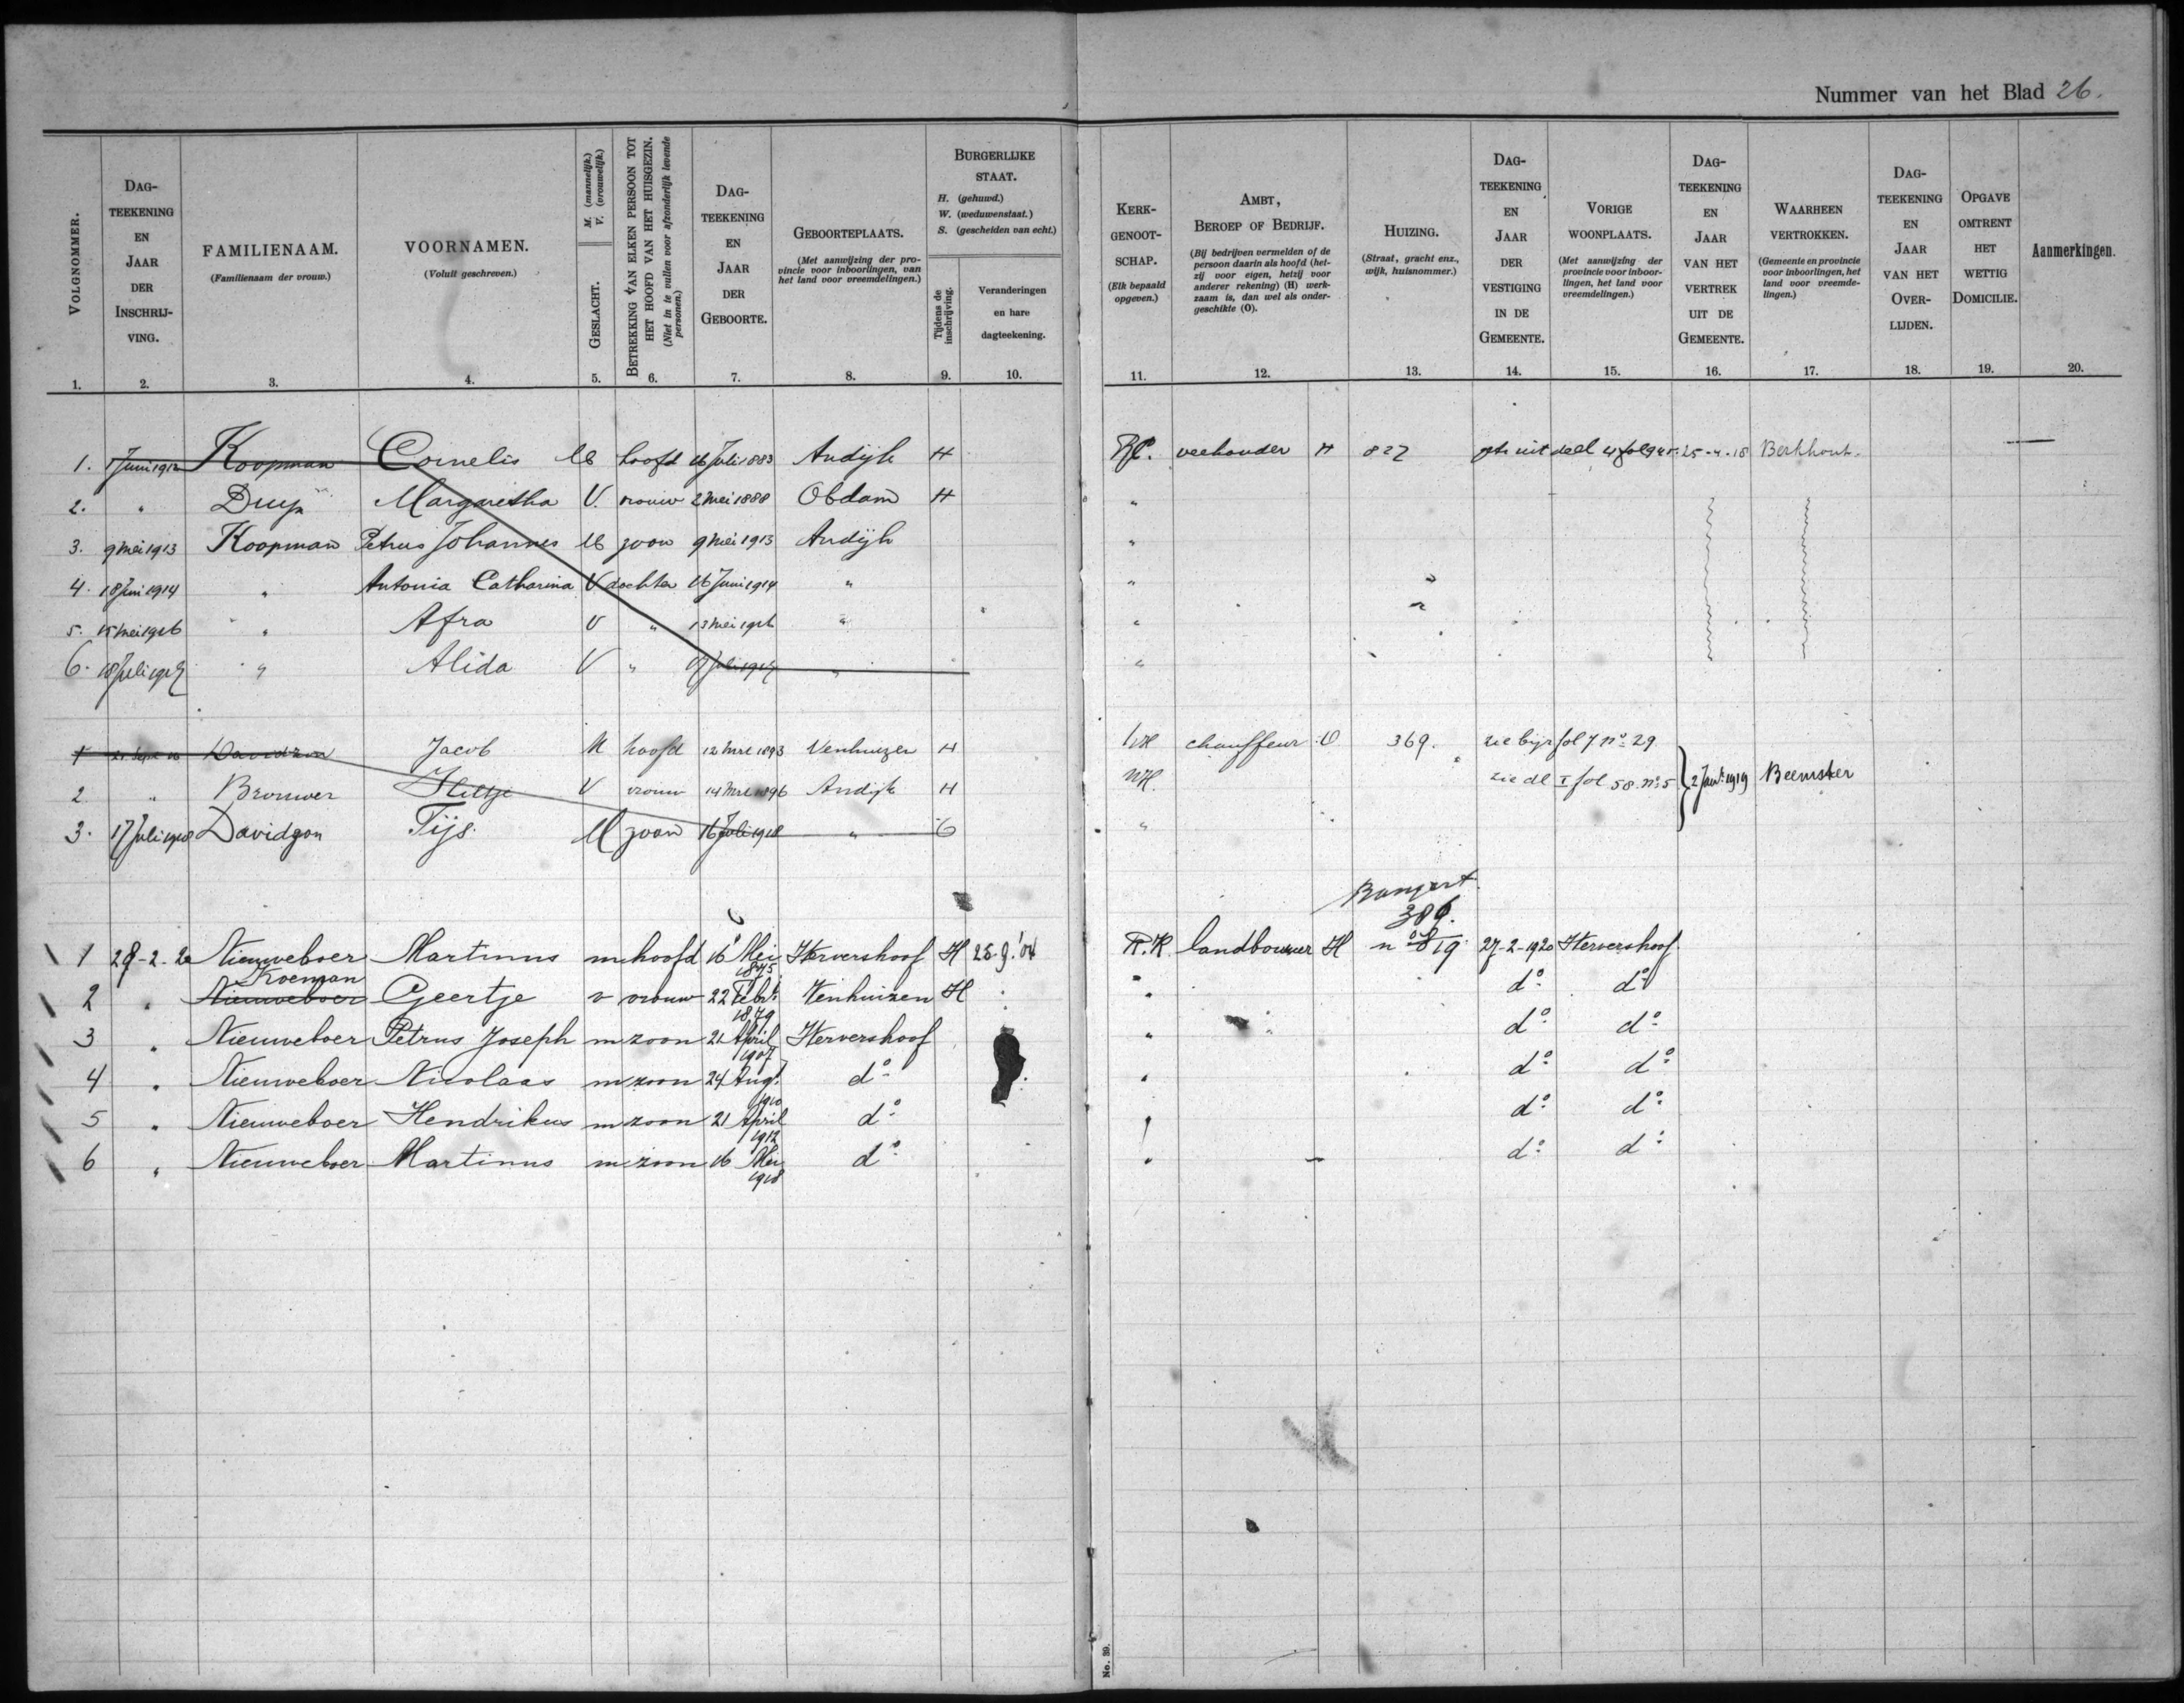 Nummer van het Blad 26.
VOLGNOMMER. 1.
DAG-TEEKENING EN JAAR DER INSCHRIJ-VING. 2.
FAMILIENAAM. (Familienaam der vrouw.) 3.
VOORNAMEN. (Voluit geschreven.) 4.
GESLACHT. M. (mannelijk.) V. (vrouwelijk.) 5.
BETREKKING VAN ELKEN PERSOON TOT HET HOOFD VAN HET HUISGEZIN. (Niet in te vullen voor afzonderlijk levende personen.) 6.
DAG-TEEKENING EN JAAR DER GEBOORTE. 7.
GEBOORTEPLAATS. (Met aanwijzing der provincie voor inboorlingen, van het land voor vreemdelingen.) 8.
BURGERLIJKE STAAT. H. (gehuwd.) W. (weduwenstaat.) S. (gescheiden van echt.)
Tijdens de inschrijving. 9.
Veranderingen en hare dagteekening. 10.
KERK-GENOOT-SCHAP. (Elk bepaald opgeven.) 11.
AMBT, BEROEP OF BEDRIJF. (Bij bedrijven vermelden of de persoon daarin als hoofd (hetzij voor eigen, hetzij voor anderer rekening) (H) werkzaam is, dan wel als ondergeschikte (O). 12.
HUIZING. (Straat, gracht enz., wijk, huisnommer.) 13.
DAG-TEEKENING EN JAAR DER VESTIGING IN DE GEMEENTE. 14.
VORIGE WOONPLAATS. (Met aanwijzing der provincie voor inboorlingen, het land voor vreemdelingen.) 15.
DAG-TEEKENING EN JAAR VAN HET VERTREK UIT DE GEMEENTE. 16.
WAARHEEN VERTROKKEN. (Gemeente en provincie voor inboorlingen, het land voor vreemdelingen.) 17.
DAG-TEEKENING EN JAAR VAN HET OVER-LIJDEN. 18.
OPGAVE OMTRENT HET WETTIG DOMICILIE. 19.
Aanmerkingen. 20.
1. 1 Juni 1912 Koopman Cornelis M hoofd 16 Juli 1883 Andijk H RC. veehouder H 827 uit deel 4 25-4-18 Berkhout.
2. " Druijf Margaretha V. vrouw 2 Mei 1888 Obdam H "
3. 9 Mei 1913 Koopman Petrus Johannes M zoon 9 Mei 1913 Andijk "
4. 18 Juni 1914 " Antonia Catharina V dochter 16 Juni 1914 " "
5. 15 Mei 1916 " Afra V " 13 Mei 1916 " "
6. 18 Juli 1917 " Alida V " Juli 1917 " "
1 21 Sept 16 Davidzon Jacob M hoofd 12 Mrt 1893 Venhuizen H NH chauffeur O 369. zie bijr fol 7 no 29
2 " Brouwer Hiltje V vrouw 14 Mrt 1896 Andijk H NH. zie dl I fol 58 no 5 2 Jan: 1919 Beemster
3. 17 Juli 1918 Davidzon Tijs. M zoon 16 Juli 1918 " "
Bangert
386.
1 28-2-20 Nieuweboer Martinus m hoofd 16 Mei 1875 Hervershoof H 25.9.'04 R.K landbouwer H no 819 27-2-1920 Hervershoof
Koeman
2 " Nieuweboer Geertje v vrouw 22 Febr. 1879 Venhuizen H " do do
3 " Nieuweboer Petrus Joseph m zoon 21 April 1907 Hervershoof " do do
4 " Nieuweboer Nicolaas m zoon 24 Augt. 1910 do " do do
5 " Nieuweboer Hendrikus m zoon 21 April 1912 do " do do
6 " Nieuweboer Martinus m zoon 16 Mei 1918 do " do do
No. 39.